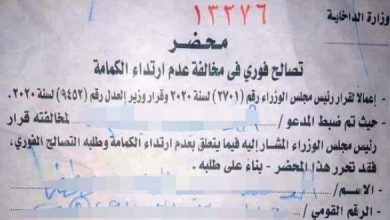 وزارة الداخلية
١٣٢٧٦
محضر
تصالح فوري فى مخالفة عدم ارتداء الكمامة
- إعمالا لقرار رئيس مجلس الوزراء رقم (٢٧٠١) لسنة ٢٠٢٠ وقرار وزير العدل رقم (٩٤٥٢) لسنة ٢٠٢٠.
- حيث تم ضبط المدعو / لمخالفته قرار
رئيس مجلس الوزراء المشار إليه فيما يتعلق بعدم ارتداء الكمامة وطلبه التصالح الفوري،
فقد تحرر هذا المحضر - بناء على طلبه .
- الاسم /
- الرقم القومي /